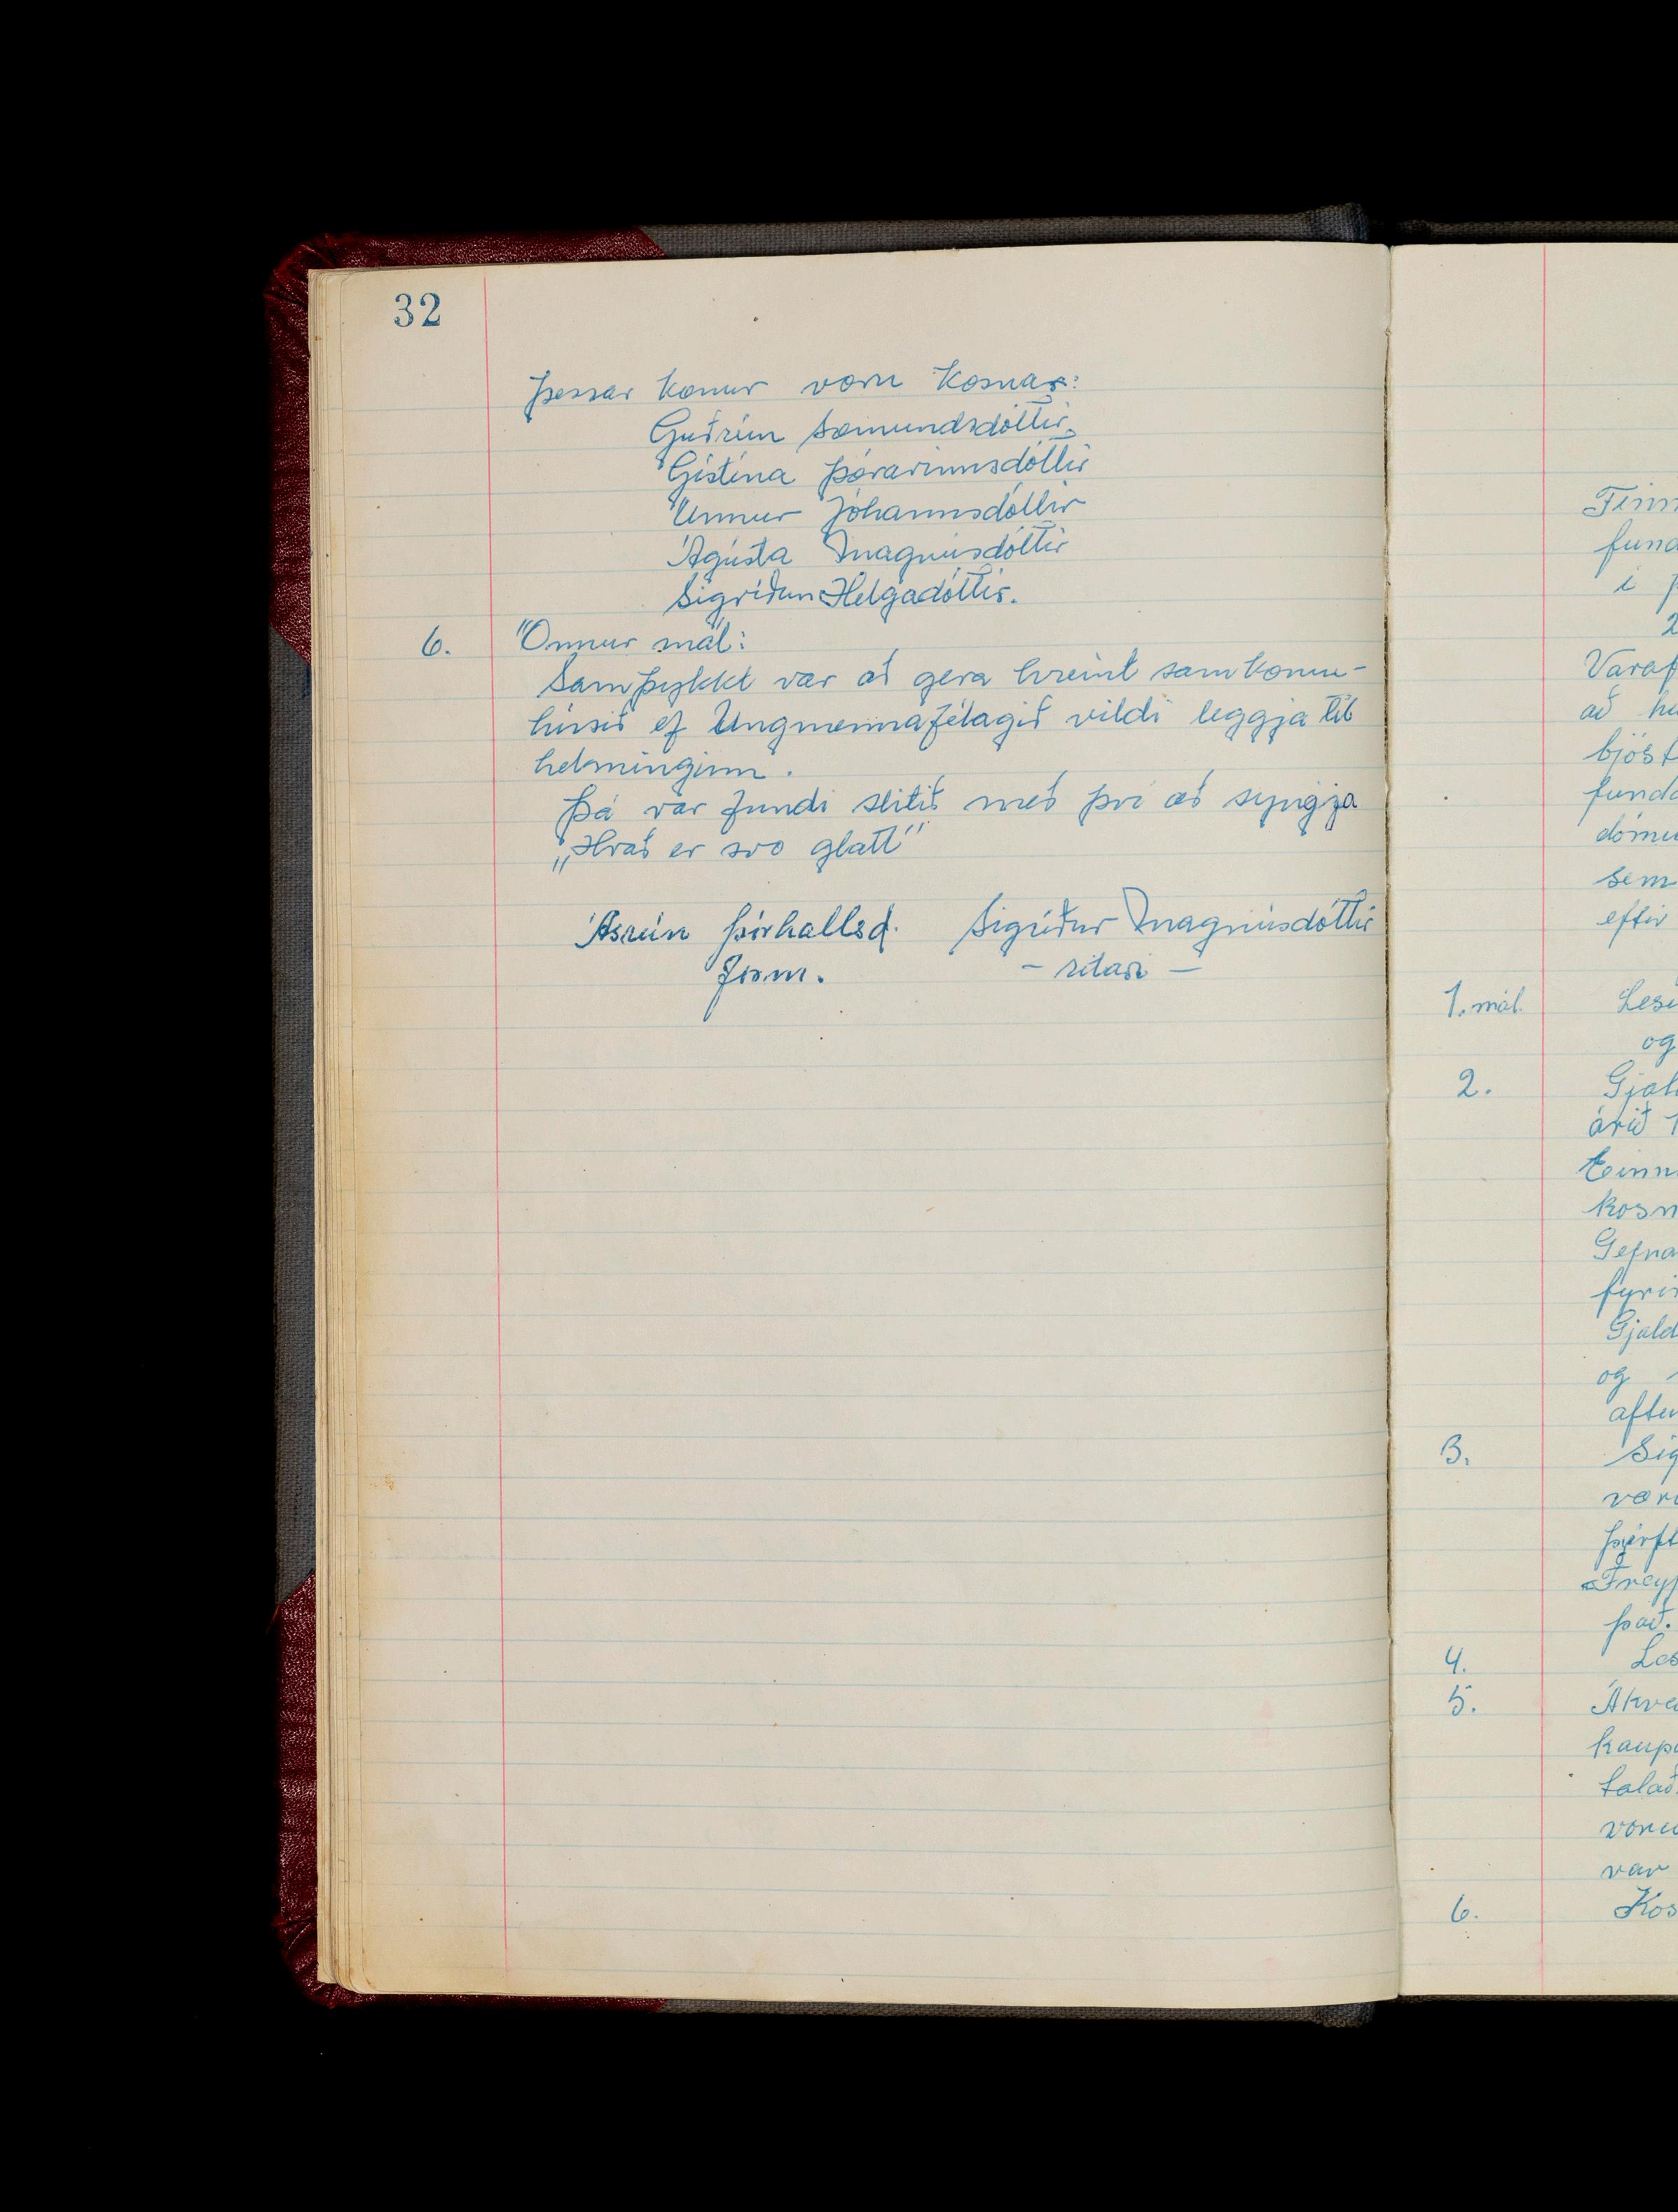 32
Þessar konur voru kosnar:
Guðrún Sæmundsdóttir.
Gistína Þórarinnsdóttir
Unnur Jóhannsdóttir
Ágústa Magnúsdóttir
Sigríður Helgadóttir.
6. Önnur mál:
Samþykkt var að gera hreint samkomu-
húsið ef Ungmennafélagið vildi leggja til
helminginn.
Þá var fundi slitið með því að syngja
„Hvað er svo glatt"
Ásrún Þórhallsd. Sigríður Magnúsdóttir
form. - ritari -
fund
i
2
Varaf
að
fund
sem
eftir
1. mál. Lesi
og
2. Gjal
árið 1
kosn
Gefna
fyrir
Gjald
og
aftu
3. Sig
það.
4. Les
5. Ákve
kaup
talað
voru
var
6. Kos